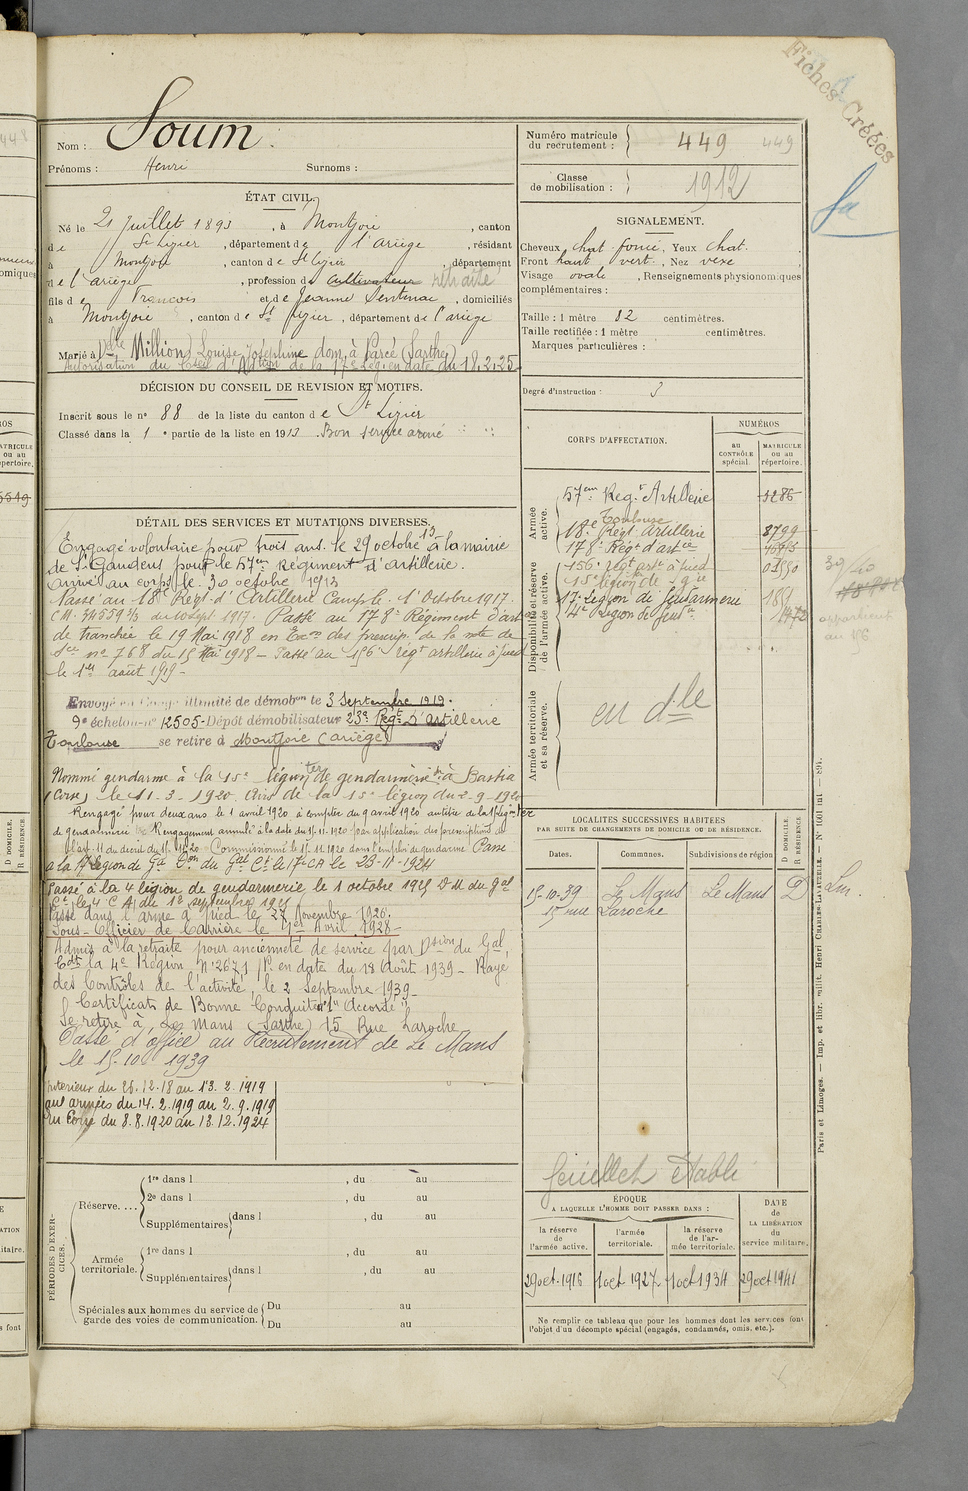 Fiches Créées
Nom : Soum
Prénoms : Henri Surnoms :
Numéro matricule du recrutement : 449 449
Classe de mobilisation : 1912
ÉTAT CIVIL.
Né le 21 Juillet 1893, à Montjoie, canton
de St Lizier, département de l'Ariège, résidant
à Montjoie, canton de St Lizier, département
de l'Ariège, profession de cultivateur retraité
fils de François et de Jeanne Sentenac, domiciliés
à Montjoie, canton de St Lizier, département de l'Ariège
Marié à Dlle Million Louise Joséphine dom. à Parcé (Sarthe)
Autorisation du Conseil d'Adtion de la 17e Légion en date du 18.2.25
DÉCISION DU CONSEIL DE REVISION ET MOTIFS.
Inscrit sous le no 88 de la liste du canton de St Lizier
Classé dans la 1e partie de la liste en 1913. Bon service armé
DÉTAIL DES SERVICES ET MUTATIONS DIVERSES.
Engagé volontaire pour trois ans le 29 octobre 13 à la mairie
de St Gaudens pour le 57em Régiment d'artillerie.
Arrivé au corps le 30 octobre 1913
Passé au 18e Régt d'Artillerie Camp. le 1 Octobre 1917.
C.M. 34559 2/3 du 10 Sept 1917. Passé au 178e Régiment d'artce
de tranchée le 19 Mai 1918 en Exon des prescrip. de la note de
Sce no 768 du 15 Mai 1918 – Passé au 156e régt artillerie à pied
le 1er août 1919 –
Envoyé en Congé illimité de démobon le 3 Septembre 1919.
9e échelon no 12505 - Dépôt démobilisateur 23e Régt d'Artillerie
Toulouse se retire à Montjoie (Ariège)
Nommé gendarme à la 15e légion ter de gendarmerie à Bastia
(Corse) le 11-3-1920. Avis de la 15e légion du 2-9-1920
Rengagé pour deux ans le 1 avril 1920 à compter du 9 avril 1920 au titre de la 15e Légion ter
de gendarmerie Rengagement annulé à la date du 15.11.1920 par application des prescriptions de
l'art. 11 du décret du 15.11.20 Commissionné le 15.11.1920 dans l'emploi de gendarme Passé
à la 17e Légion de Gie Don du Gal Ct le 17e CA le 23-11-1924
Passé à la 4 légion de gendarmerie le 1 octobre 1925 D.M du Gal
Ct le 4e CA du 12 septembre 1925
Passé dans l'arme à pied le 27 Novembre 1926.
Sous-Officier de Carrière le 1er Avril 1928 –
Admis à la retraite pour ancienneté de service par Dsion du Gal
Cdt la 4e Région No 2671 /P. en date du 18 Août 1939 – Rayé
des Contrôles de l'activité, le 2 Septembre 1939 –
Certificat de Bonne Conduite "Accordé"
Se retire à Le Mans (Sarthe) 15 Rue Laroche
Passé d'office au Recrutement de Le Mans
le 15-10-1939
Intérieur du 25.12.18 au 13.2.1919
aux armées du 14.2.1919 au 2.9.1919
En Corse du 8.8.1920 au 13.12.1924
PÉRIODES D'EXERCICES.
Réserve.... 1re dans l , du au
2e dans l , du au
Supplémentaires dans l , du au
Armée territoriale. 1re dans l , du au
Supplémentaires dans l , du au
Spéciales aux hommes du service de garde des voies de communication. Du au
Du au
SIGNALEMENT.
Cheveux chat. foncé, Yeux chat.
Front haut vert., Nez vexe
Visage ovale, Renseignements physionomiques
complémentaires :
Taille : 1 mètre 82 centimètres.
Taille rectifiée : 1 mètre centimètres.
Marques particulières :
Degré d'instruction : 3
CORPS D'AFFECTATION.
NUMÉROS
au CONTRÔLE spécial.
MATRICULE ou au répertoire.
Armée active.
57em Régt Artillerie 3286
Toulouse
18e Régt Artillerie 8799
178e Régt d'artce
Disponibilité et réserve de l'armée active.
156e régt artie à pied
15e légion de gie
17e Légion de Gendarmerie
4e Légion de Gend. 1472
Armée territoriale et sa réserve.
en dlle
LOCALITÉS SUCCESSIVES HABITÉES
PAR SUITE DE CHANGEMENTS DE DOMICILE OU DE RÉSIDENCE.
Dates. Communes. Subdivisions de région D DOMICILE. R RÉSIDENCE.
15-10-39 Le Mans Le Mans D
15 rue Laroche
feuillet établi
ÉPOQUE
A LAQUELLE L'HOMME DOIT PASSER DANS :
la réserve de l'armée active. l'armée territoriale. la réserve de l'armée territoriale. DATE de LA LIBÉRATION du service militaire.
29 oct. 1916 1 oct 1927 1 oct 1934 29 oct 1941
Ne remplir ce tableau que pour les hommes dont les services font
l'objet d'un décompte spécial (engagés, condamnés, omis, etc.).
Paris et Limoges. — Imp. et libr. milit. Henri CHARLES-LAVAUZELLE. — No 1001 int — 891.